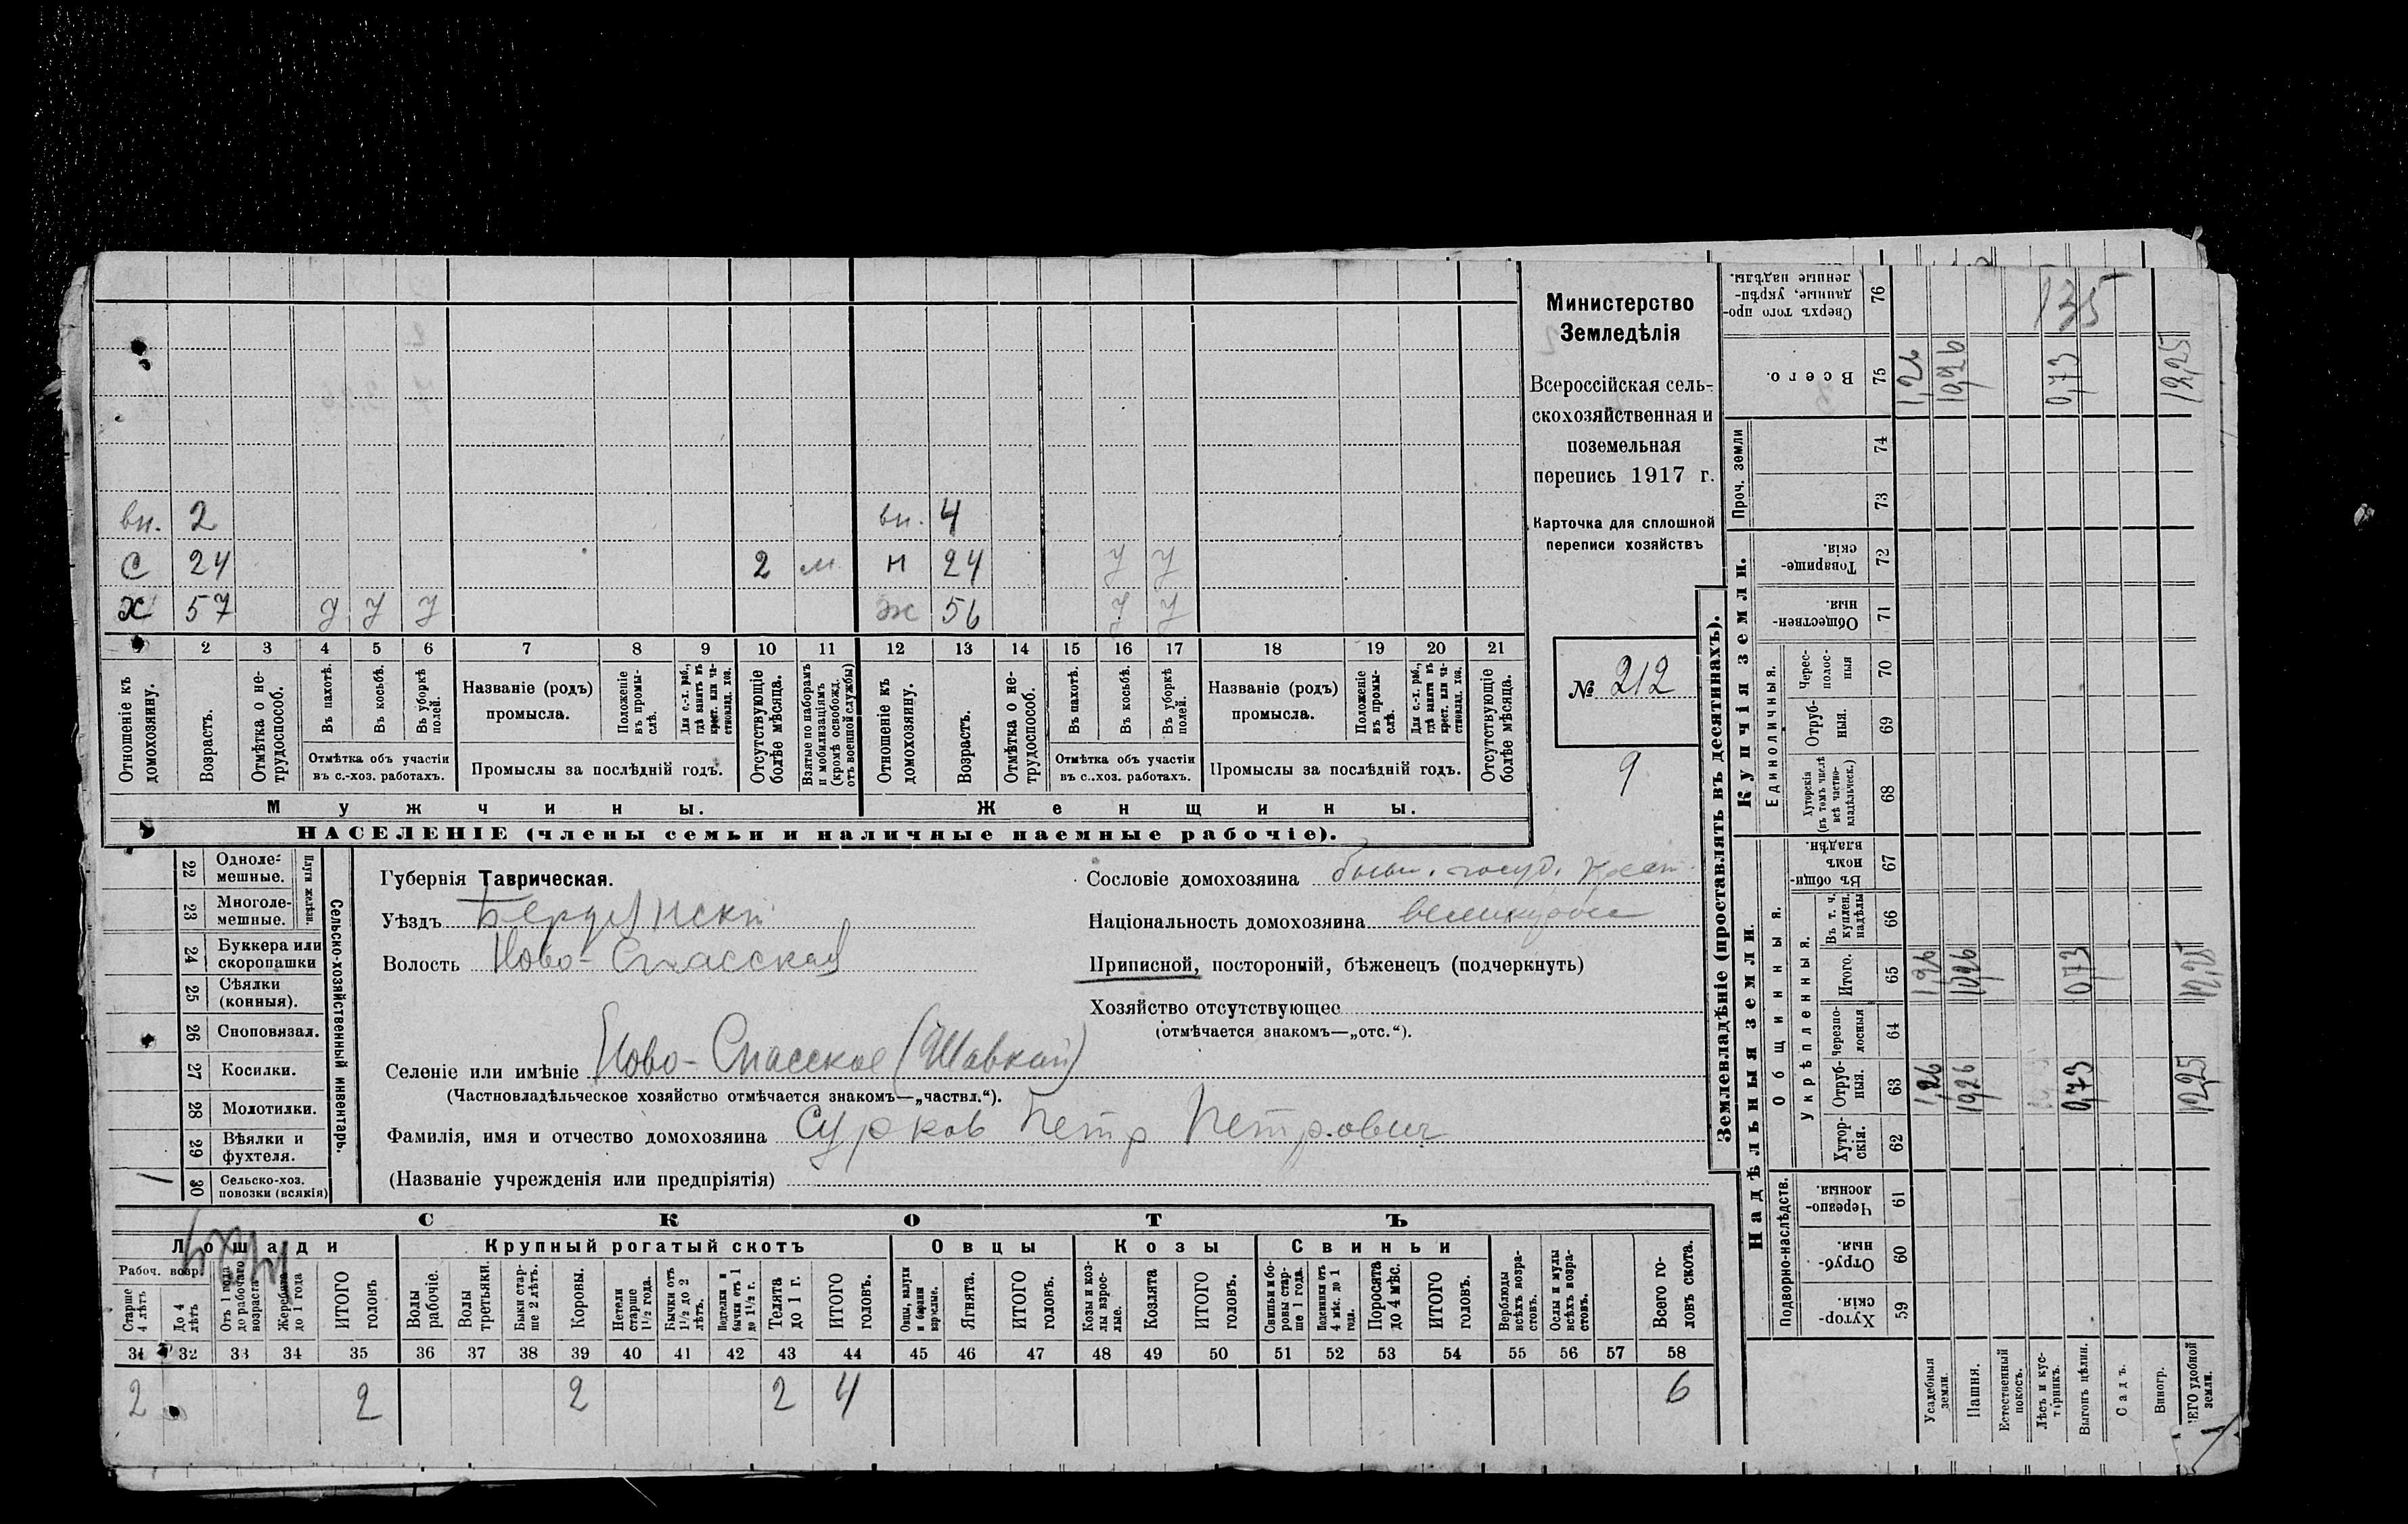 вн. 2 вн. 4
С 24 2 м н 24 У У
Х 57 У У У ж 56 У У
1 2 3 4 5 6 7 8 9 10 11 12 13 14 15 16 17 18 19 20 21
Отношеніе къ домохозяину.
Возрастъ.
Отмѣтка о не-
трудоспособ.
Въ пахотѣ.
Въ косьбѣ.
Въ уборкѣ
полей.
Отмѣтка объ участіи
въ с.-хоз. работахъ.
Названіе (родъ)
промысла.
Положеніе
въ промы-
слѣ.
Для с.-х. раб.,
гдѣ занятъ въ
крест. или ча-
стновлад. хоз.
Промыслы за послѣдній годъ.
Отсутствующіе
болѣе мѣсяца.
Взятые по наборамъ
и мобилизаціямъ
(кромѣ освобожд.
отъ военной службы)
Отношеніе къ
домохозяину.
Возрастъ.
Отмѣтка о не-
трудоспособ.
Въ пахотѣ.
Въ косьбѣ.
Въ уборкѣ
полей.
Отмѣтка объ участіи
въ с..хоз. работахъ.
Названіе (родъ)
промысла.
Положеніе
въ промы-
слѣ.
Для с.-х. раб.,
гдѣ занята въ
крест. или ча-
стновлад. хоз.
Промыслы за послѣдній годъ.
Отсутствующіе
болѣе мѣсяца.
Мужчины. Женщины.
НАСЕЛЕНІЕ (члены семьи и наличные наемные рабочіе).
Министерство
Земледѣлія
Всероссійская сель-
скохозяйственная и
поземельная
перепись 1917 г.
Карточка для сплошной
переписи хозяйствъ
№ 212
9
22 Одноле-
мешные.
23 Многоле-
мешные.
Плуги желѣзн.
24 Буккера или
скоропашки
25 Сѣялки
(конныя).
26 Сноповязал.
27 Косилки.
28 Молотилки.
29 Вѣялки и
фухтеля.
1 30 Сельско-хоз.
повозки (всякія)
Сельско-хозяйственный инвентарь.
Губернія Таврическая.
Уѣздъ Бердянскій
Волость Ново-Спасская
Селеніе или имѣніе Ново-Спасское (Шавкай)
(Частновладѣльческое хозяйство отмѣчается знакомъ—„частвл.“).
Фамилія, имя и отчество домохозяина Сурков Петр Петрович
(Названіе учрежденія или предпріятія)
Сословіе домохозяина бывш. госуд. крест.
Національность домохозяина великоросс
Приписной, посторонній, бѣженецъ (подчеркнуть)
Хозяйство отсутствующее
(отмѣчается знакомъ—„отс.“).
СКОТЪ
Лошади Крупный рогатый скотъ Овцы Козы Свиньи
Рабоч. возр.
Старше
4 лѣтъ
До 4
лѣтъ
Отъ 1 года
до рабочаго
возраста
Жеребята
до 1 года
ИТОГО
головъ
Волы
рабочіе.
Волы
третьяки.
Быки стар-
ше 2 лѣтъ.
Коровы.
Нетели
старше
1½ года.
Бычки отъ
1½ до 2
лѣтъ.
Подтелки и
бычки отъ 1
до 1½ г.
Телята
до 1 г.
ИТОГО
головъ.
Овцы, валухи
и бараны
взрослые.
Ягнята.
ИТОГО
головъ.
Козы и коз-
лы взрос-
лые.
Козлята
ИТОГО
головъ.
Свиньи и бо-
ровы стар-
ше 1 года.
Подсвинки отъ
4 мѣс. до 1
года.
Поросята
до 4 мѣс.
ИТОГО
головъ.
Верблюды
всѣхъ возра-
стовъ.
Ослы и мулы
всѣхъ возра-
стовъ.
Всего го-
ловъ скота.
31 32 33 34 35 36 37 38 39 40 41 42 43 44 45 46 47 48 49 50 51 52 53 54 55 56 57 58
2 2 2 2 4 6
Землевладѣніе (проставлять въ десятинахъ).
Надѣльныя земли. Купчія земли. Проч. земли
Подворно-наслѣдств.
Общинныя.
Укрѣпленныя.
Единоличныя.
Хутор-
скія. 59
Отруб-
ныя 60
Черезпо-
лосныя. 61
Хутор-
скія. 62
Отруб-
ныя. 63
Черезпо-
лосныя 64
Итого. 65
Въ т. ч.
куплен.
надѣлы 66
Въ общи-
номъ
владѣн. 67
Хуторскія
(въ томъ числѣ
всѣ частно-
владѣльческ.) 68
Отруб-
ныя. 69
Черес-
полос-
ныя 70
Обществен-
ныя. 71
Товарище-
скія. 72
73
74
Всего. 75
Сверхъ того про-
данные, укрѣп-
ленные надѣлы. 76
Усадебныя
земли. 1,26 1,26 1,26
Пашня. 10,26 10,26 10,26
Естественный
покосъ.
Лѣсъ и кус-
тарникъ.
Выгонъ цѣлин. 0,73 0,73 0,73
135
Садъ.
Виногр.
ЕГО удобной
земли. 12,25 12,25 12,25